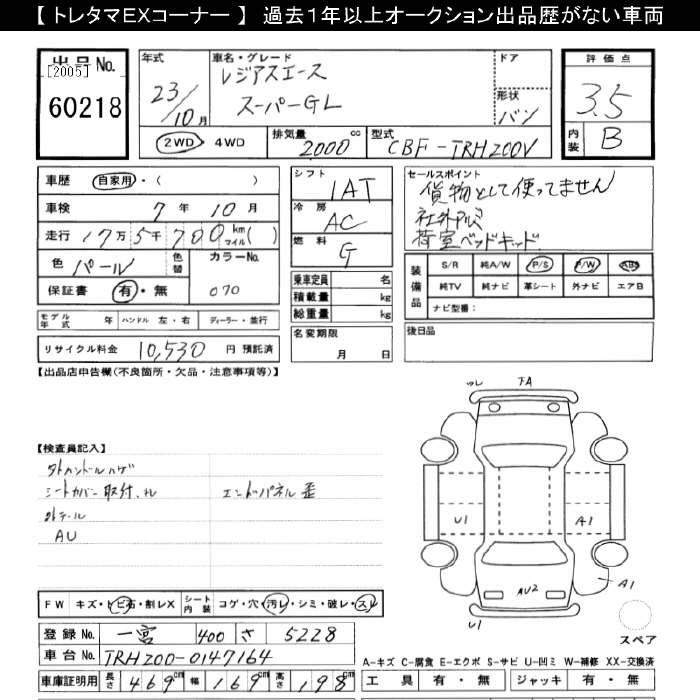 【 トレタマEXコーナー 】 過去1年以上オークション出品歴がない車両
出品No.
[2005]
60218
年式
23/10月
車名・グレード
レジアスエース
スーパーGL
ドア
形状
バン
評価点
3.5
内装
B
2WD ・ 4WD
排気量
2000 cc
型式
CBF-TRH200V
車歴
自家用・( )
車検
7年10月
走行
17万5千700 km マイル( )
色
パール
色替
カラーNo.
070
保証書
有・無
モデル年式 年
ハンドル 左・右
ディーラー・並行
リサイクル料金
10,530 円 預託済
シフト
IAT
冷房
AC
燃料
G
乗車定員 名
積載量 kg
総重量 kg
名変期限
月 日
セールスポイント
貨物として使ってません
荷室ベッドキッド
装備品
S/R 純A/W P/S P/W ABS
純TV 純ナビ 革シート 外ナビ エアB
ナビ型番:
後日品
【出品店申告欄(不良箇所・欠品・注意事項等)】
【検査員記入】
シートカバー取付、
エンドパネル歪
外テール
AU
ワレ
下A
U1
A1
AU2
A1
U1
スペア
FW キズ・トビ石・割レX
シート内装
コゲ・穴・汚レ・シミ・破レ・スレ
登録No.
一宮 400 さ 5228
車台No.
TRH200-0147164
車庫証明用
長さ 469cm 幅 169cm 高さ 198cm
A-キズ C-腐食 E-エクボ S-サビ U-凹ミ W-補修 XX-交換済
工具 有・無 ジャッキ 有・無